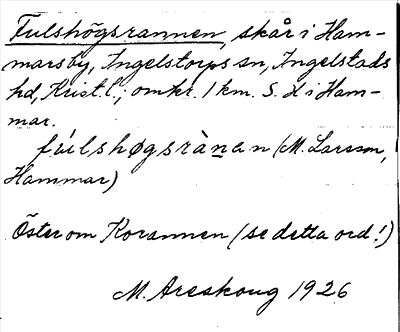 Fulshögsrannen, skår i Ham-
marsby, Ingelstorps sn, Ingelstads
hd, Krist. l.; omkr. 1 km. S. H i Ham-
mar.
fúlshøgsrànan (M. Larsson,
Hammar)
Öster om Korannen (se detta ord!)
M. Areskoug 1926